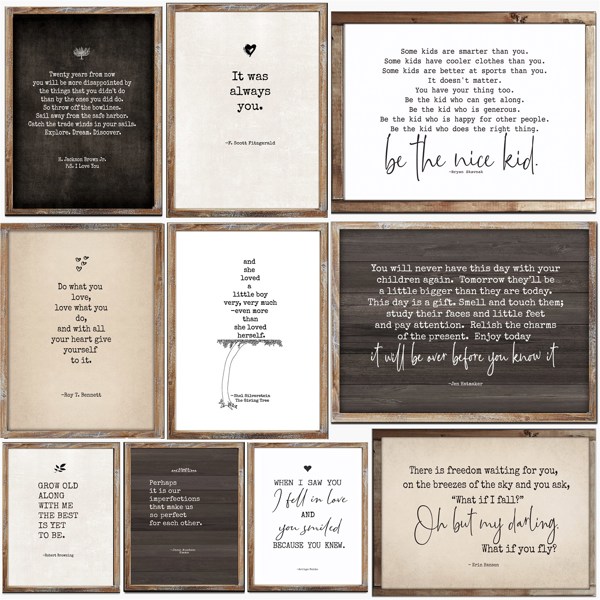 Twenty years from now
you will be more disappointed by
the things that you didn't do
than by the ones you did do.
So throw off the bowlines.
Sail away from the safe harbor.
Catch the trade winds in your sails.
Explore. Dream. Discover.
H. Jackson Brown Jr.
P.S. I Love You
It was
always
you.
-F. Scott Fitzgerald
Some kids are smarter than you.
Some kids have cooler clothes than you.
Some kids are better at sports than you.
It doesn't matter.
You have your thing too.
Be the kid who can get along.
Be the kid who is generous.
Be the kid who is happy for other people.
Be the kid who does the right thing.
be the nice kid.
-Bryan Skavnak
Do what you
love,
love what you
do,
and with all
your heart give
yourself
to it.
-Roy T. Bennett
and
she
loved
a
little boy
very, very much
-even more
than
she loved
herself.
-Shel Silverstein
The Giving Tree
You will never have this day with your
children again. Tomorrow they'll be
a little bigger than they are today.
This day is a gift. Smell and touch them;
study their faces and little feet
and pay attention. Relish the charms
of the present. Enjoy today
it will be over before you know it
-Jen Hatmaker
GROW OLD
ALONG
WITH ME
THE BEST
IS YET
TO BE.
-Robert Browning
Perhaps
it is our
imperfections
that make us
so perfect
for each other.
WHEN I SAW YOU
I fell in love
AND
you smiled
BECAUSE YOU KNEW.
There is freedom waiting for you,
on the breezes of the sky and you ask,
"What if I fall?"
Oh but my darling,
What if you fly?
- Erin Hanson